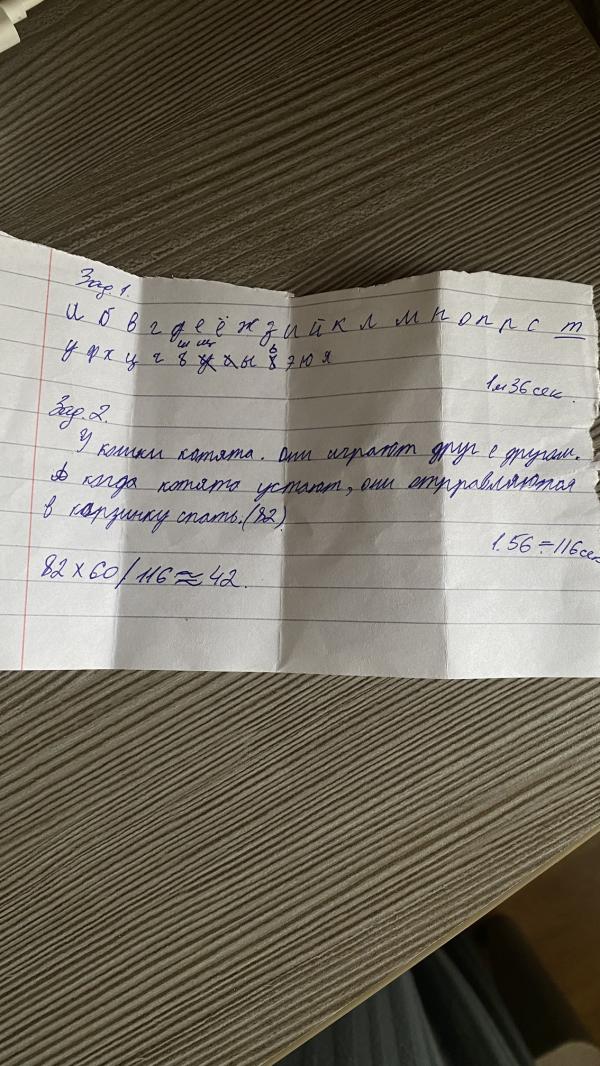 Зад 1.
а б в г д е ё ж з и й к л м н о п р с т
у ф х ц ч ш щ ъ ы ь э ю я
1м 36 сек.
Зад. 2.
У кошки котята. Они играют друг с другом.
А когда котята устают, они отправляются
в корзинку спать. (82)
1.56 = 116 сек
82 × 60 / 116 ≈ 42.